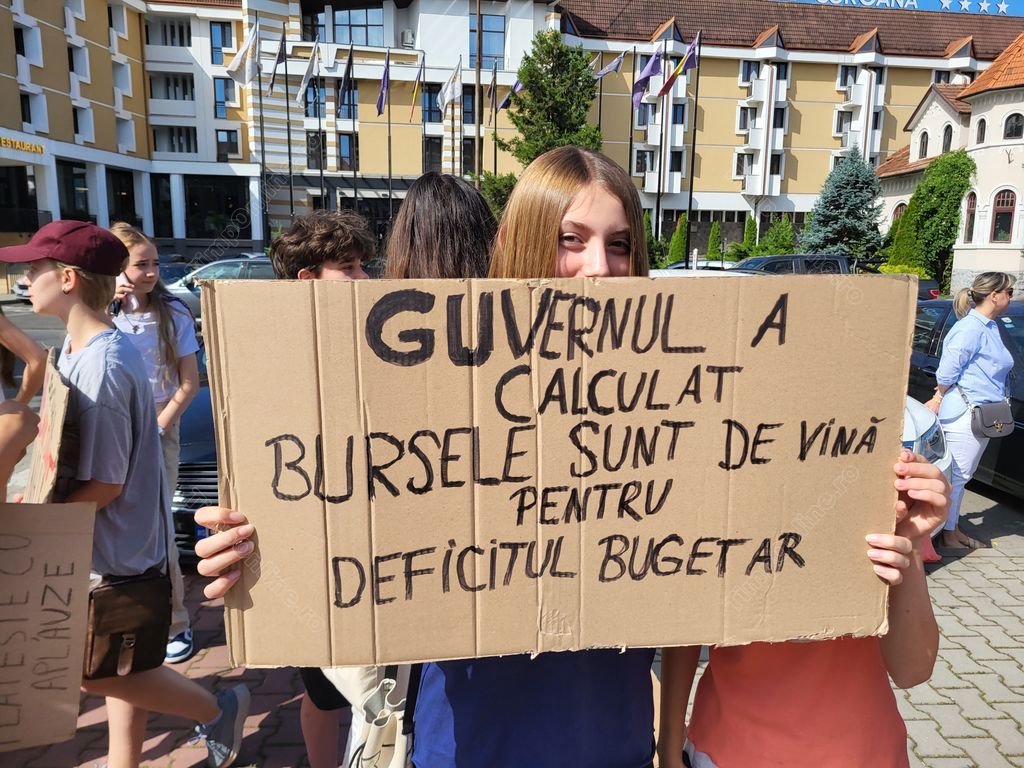 COROANA
RESTAURANT
GUVERNUL A
CALCULAT
BURSELE SUNT DE VINĂ
PENTRU
DEFICITUL BUGETAR
ESTE CU
APLAUZE